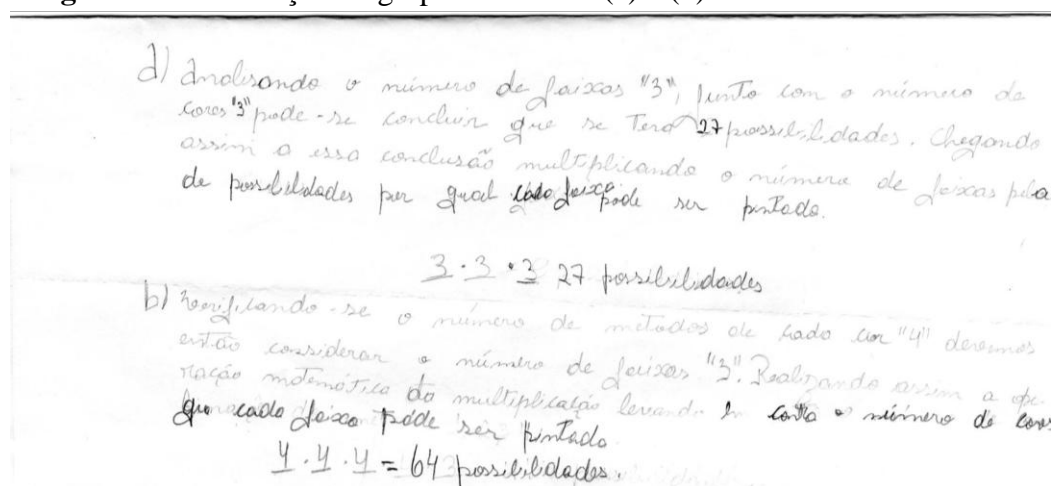 a) Analisando o número de faixas "3", junto com o número de
cores "3" pode-se concluir que se Terá 27 possibilidades. Chegando
assim a essa conclusão multiplicando o número de faixas pela
de possibilidades por qual cada faixa pode ser pintada.
3 . 3 . 3 27 possibilidades
b) Verificando-se o número de métodos de cada cor "4" devemos
então considerar o número de faixas "3". Realizando assim a ope
ração matemática da multiplicação levando em conta o número de cores
que cada faixa pode ser pintada
4 . 4 . 4 = 64 possibilidades.